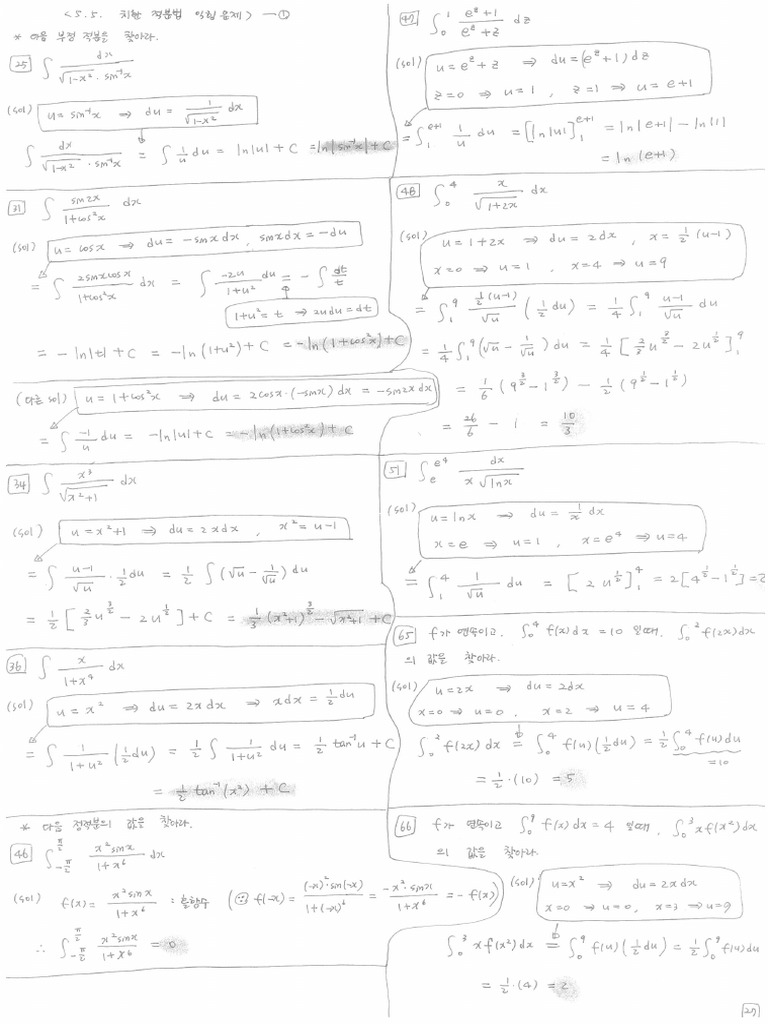 <5.5. 치환 적분법 연습문제> - ①
* 다음 부정 적분을 찾아라.
25 ∫ dx / (√(1-x²) · sin⁻¹x)
(sol) u = sin⁻¹x ⇒ du = 1/√(1-x²) dx
∫ dx / (√(1-x²) · sin⁻¹x) = ∫ 1/u du = ln|u| + C = ln|sin⁻¹x| + C
31 ∫ sin2x / (1+cos²x) dx
(sol) u = cosx ⇒ du = -sinx dx, sinx dx = -du
= ∫ 2sinxcosx / (1+cos²x) dx = ∫ -2u / (1+u²) du = - ∫ dt/t
1+u² = t ⇒ 2udu = dt
= -ln|t| + C = -ln(1+u²) + C = -ln(1+cos²x) + C
(다른 sol) u = 1+cos²x ⇒ du = 2cosx·(-sinx) dx = -sin2x dx
= ∫ -1/u du = -ln|u| + C = -ln(1+cos²x) + C
34 ∫ x³ / √(x²+1) dx
(sol) u = x²+1 ⇒ du = 2xdx, x² = u-1
= ∫ (u-1)/√u · 1/2 du = 1/2 ∫ (√u - 1/√u) du
= 1/2 [ 2/3 u^(3/2) - 2u^(1/2) ] + C = 1/3 (x²+1)^(3/2) - √(x²+1) + C
36 ∫ x / (1+x⁴) dx
(sol) u = x² ⇒ du = 2xdx ⇒ xdx = 1/2 du
= ∫ 1/(1+u²) (1/2 du) = 1/2 ∫ 1/(1+u²) du = 1/2 tan⁻¹u + C
= 1/2 tan⁻¹(x²) + C
* 다음 정적분의 값을 찾아라.
46 ∫_{-π/2}^{π/2} x²sinx / (1+x⁶) dx
(sol) f(x) = x²sinx / (1+x⁶) : 홀함수 (∵ f(-x) = (-x)²·sin(-x) / (1+(-x)⁶) = -x²·sinx / (1+x⁶) = -f(x)
∴ ∫_{-π/2}^{π/2} x²sinx / (1+x⁶) = 0
47 ∫_0^1 (e^z+1) / (e^z+z) dz
(sol) u = e^z+z ⇒ du = (e^z+1) dz
z=0 ⇒ u=1, z=1 ⇒ u = e+1
= ∫_1^{e+1} 1/u du = [ln|u|]_1^{e+1} = ln|e+1| - ln|1|
= ln(e+1)
48 ∫_0^4 x / √(1+2x) dx
(sol) u = 1+2x ⇒ du = 2dx, x = 1/2 (u-1)
x=0 ⇒ u=1, x=4 ⇒ u=9
= ∫_1^9 (1/2(u-1))/√u (1/2 du) = 1/4 ∫_1^9 (u-1)/√u du
= 1/4 ∫_1^9 (√u - 1/√u) du = 1/4 [ 2/3 u^(3/2) - 2u^(1/2) ]_1^9
= 1/6 (9^(3/2) - 1^(3/2)) - 1/2 (9^(1/2) - 1^(1/2))
= 26/6 - 1 = 10/3
51 ∫_e^{e⁴} dx / (x√(lnx))
(sol) u = lnx ⇒ du = 1/x dx
x=e ⇒ u=1, x=e⁴ ⇒ u=4
= ∫_1^4 1/√u du = [ 2u^(1/2) ]_1^4 = 2[4^(1/2) - 1^(1/2)] = 2
65 f가 연속이고, ∫_0^4 f(x)dx = 10 일때, ∫_0^2 f(2x)dx
의 값을 찾아라.
(sol) u = 2x ⇒ du = 2dx
x=0 ⇒ u=0, x=2 ⇒ u=4
∫_0^2 f(2x) dx = ∫_0^4 f(u) (1/2 du) = 1/2 ∫_0^4 f(u) du
=10
= 1/2 · (10) = 5
66 f가 연속이고 ∫_0^9 f(x)dx = 4 일때, ∫_0^3 xf(x²)dx
의 값을 찾아라.
(sol) u = x² ⇒ du = 2xdx
x=0 ⇒ u=0, x=3 ⇒ u=9
∫_0^3 xf(x²)dx = ∫_0^9 f(u) (1/2 du) = 1/2 ∫_0^9 f(u)du
= 1/2 · (4) = 2
27